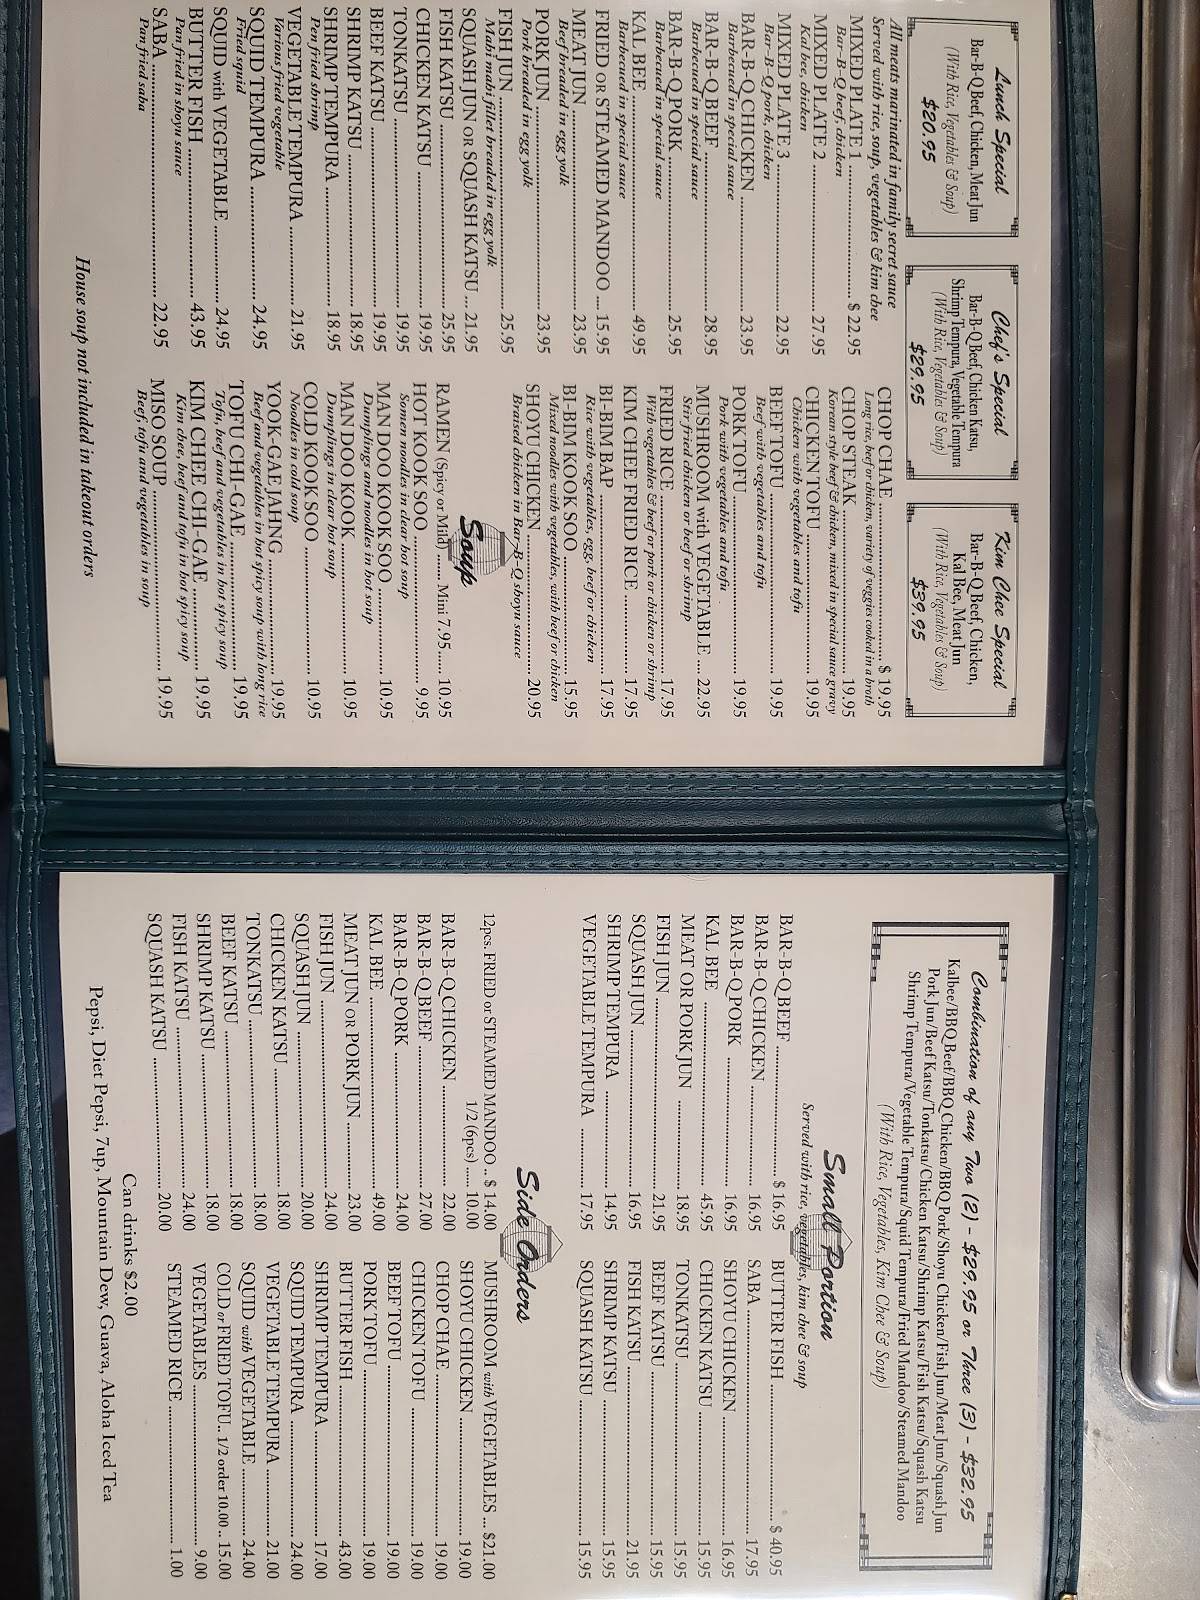 Lunch Special
Bar-B-Q Beef, Chicken, Meat Jun
(With Rice, Vegetables & Soup)
$20.95
Chef's Special
Bar-B-Q Beef, Chicken Katsu,
Shrimp Tempura, Vegetable Tempura
(With Rice, Vegetables & Soup)
$29.95
Kim Chee Special
Bar-B-Q Beef, Chicken,
Kal Bee, Meat Jun
(With Rice, Vegetables & Soup)
$39.95
All meats marinated in family secret sauce
Served with rice, soup, vegetables & kim chee
MIXED PLATE 1 $ 22.95
Bar-B-Q beef, chicken
MIXED PLATE 2 27.95
Kal bee, chicken
MIXED PLATE 3 22.95
Bar-B-Q pork, chicken
BAR-B-Q CHICKEN 23.95
Barbecued in special sauce
BAR-B-Q BEEF 28.95
Barbecued in special sauce
BAR-B-Q PORK 25.95
Barbecued in special sauce
KAL BEE 49.95
Barbecued in special sauce
FRIED OR STEAMED MANDOO 15.95
MEAT JUN 23.95
Beef breaded in egg yolk
PORK JUN 23.95
Pork breaded in egg yolk
FISH JUN 25.95
Mahi mahi fillet breaded in egg yolk
SQUASH JUN OR SQUASH KATSU 21.95
FISH KATSU 25.95
CHICKEN KATSU 19.95
TONKATSU 19.95
BEEF KATSU 19.95
SHRIMP KATSU 18.95
SHRIMP TEMPURA 18.95
Pen fried shrimp
VEGETABLE TEMPURA 21.95
Various fried vegetable
SQUID TEMPURA 24.95
Fried squid
SQUID with VEGETABLE 24.95
BUTTER FISH 43.95
Pan fried in shoyu sauce
SABA 22.95
Pan fried saba
CHOP CHAE $ 19.95
Long rice, beef or chicken, variety of veggies cooked in a broth
CHOP STEAK 19.95
Korean style beef & chicken, mixed in special sauce gravy
CHICKEN TOFU 19.95
Chicken with vegetables and tofu
BEEF TOFU 19.95
Beef with vegetables and tofu
PORK TOFU 19.95
Pork with vegetables and tofu
MUSHROOM with VEGETABLE 22.95
Stir fried chicken or beef or shrimp
FRIED RICE 17.95
With vegetables & beef or pork or chicken or shrimp
KIM CHEE FRIED RICE 17.95
BI-BIM BAP 17.95
Rice with vegetables, egg, beef or chicken
BI-BIM KOOK SOO 15.95
Mixed noodles with vegetables, with beef or chicken
SHOYU CHICKEN 20.95
Braised chicken in Bar-B-Q shoyu sauce
Soup
RAMEN (Spicy or Mild) Mini 7.95 10.95
HOT KOOK SOO 9.95
Somen noodles in clear hot soup
MAN DOO KOOK SOO 10.95
Dumplings and noodles in hot soup
MAN DOO KOOK 10.95
Dumplings in clear hot soup
COLD KOOK SOO 10.95
Noodles in cold soup
YOOK-GAE JAHNG 19.95
Beef and vegetables in hot spicy soup with long rice
TOFU CHI-GAE 19.95
Tofu, beef and vegetables in hot spicy soup
KIM CHEE CHI-GAE 19.95
Kim chee, beef and tofu in hot spicy soup
MISO SOUP 19.95
Beef, tofu and vegetables in soup
House soup not included in takeout orders
Combination of any Two (2) - $29.95 or Three (3) - $32.95
Kalbee/BBQ Beef/BBQ Chicken/BBQ Pork/Shoyu Chicken/Fish Jun/Meat Jun/Squash Jun
Pork Jun/Beef Katsu/Tonkatsu/Chicken Katsu/Shrimp Katsu/Fish Katsu/Squash Katsu
Shrimp Tempura/Vegetable Tempura/Squid Tempura/Fried Mandoo/Steamed Mandoo
(With Rice, Vegetables, Kim Chee & Soup)
Small Portion
Served with rice, vegetables, kim chee & soup
BAR-B-Q BEEF $ 16.95
BAR-B-Q CHICKEN 16.95
BAR-B-Q PORK 16.95
KAL BEE 45.95
MEAT OR PORK JUN 18.95
FISH JUN 21.95
SQUASH JUN 16.95
SHRIMP TEMPURA 14.95
VEGETABLE TEMPURA 17.95
BUTTER FISH $ 40.95
SABA 17.95
SHOYU CHICKEN 16.95
CHICKEN KATSU 15.95
TONKATSU 15.95
BEEF KATSU 15.95
FISH KATSU 21.95
SHRIMP KATSU 15.95
SQUASH KATSU 15.95
Side Orders
12pcs. FRIED or STEAMED MANDOO $ 14.00
1/2 (6pcs) 10.00
BAR-B-Q CHICKEN 22.00
BAR-B-Q BEEF 27.00
BAR-B-Q PORK 24.00
KAL BEE 49.00
MEAT JUN OR PORK JUN 23.00
FISH JUN 24.00
SQUASH JUN 20.00
CHICKEN KATSU 18.00
TONKATSU 18.00
BEEF KATSU 18.00
SHRIMP KATSU 18.00
FISH KATSU 24.00
SQUASH KATSU 20.00
MUSHROOM with VEGETABLES $21.00
SHOYU CHICKEN 19.00
CHOP CHAE 19.00
CHICKEN TOFU 19.00
BEEF TOFU 19.00
PORK TOFU 19.00
BUTTER FISH 43.00
SHRIMP TEMPURA 17.00
SQUID TEMPURA 24.00
VEGETABLE TEMPURA 21.00
SQUID with VEGETABLE 24.00
COLD or FRIED TOFU 1/2 order 10.00 15.00
VEGETABLES 9.00
STEAMED RICE 1.00
Can drinks $2.00
Pepsi, Diet Pepsi, 7up, Mountain Dew, Guava, Aloha Iced Tea